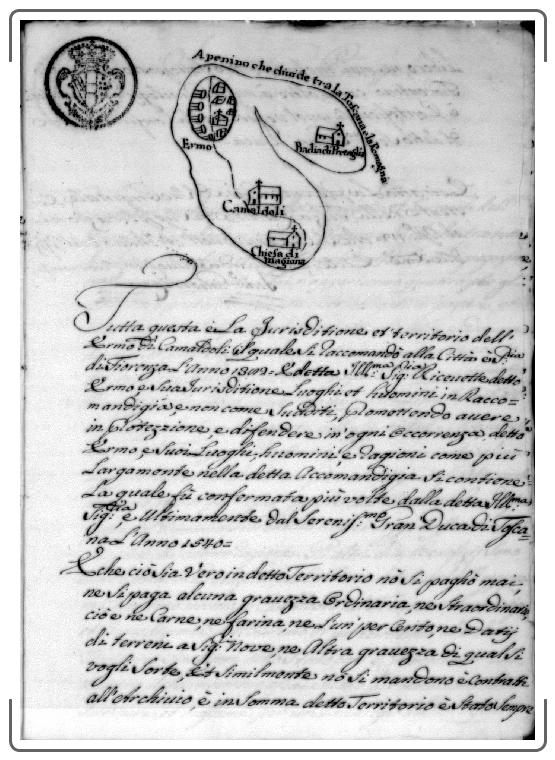 Apenino che diuide tra la Toscana e la Romagna
Ermo
Badia di Prataglia
Camaldoli
Chiesa di
Magiona
Tutta questa è La Jurisditione et territorio dell'
Ermo di Camaldoli Il quale Si Raccomandò alla Città e Sig.ria
di Fiorenza L'Anno 1382. E detta Ill.ma Sig.ria Riceuette detto
Ermo e Sua Jurisditione Luoghi et huomini in Racco-
mandigia e non come Sudditi, Promettendo auere
in Protezzione, e difendere in ogni Occorrenza, detto
Ermo e Suoi Luoghi, huomini, e ragioni come più
Largamente nella detta Accomandigia Si contiene
La quale fù confermata più volte dalla detta Ill.ma
Sig.ria e Ultimamente dal Sereniss.mo Gran Duca di Tosca=
na L'Anno 1540=
E che ciò sia Vero in detto Territorio nō Si pagho mai,
ne Si paga alcuna grauezza Ordinaria, ne Straordinaria
ciò è ne Carne, ne farina, ne L'un per Cento, ne Datij
di terreni a Sig.ri Noue, ne Altra grauezza di qual Si
vogli Sorte, Et Similmente nō Si mandono è Contratti
all'Archiuio, è in Somma detto Territorio è Stato Sempre